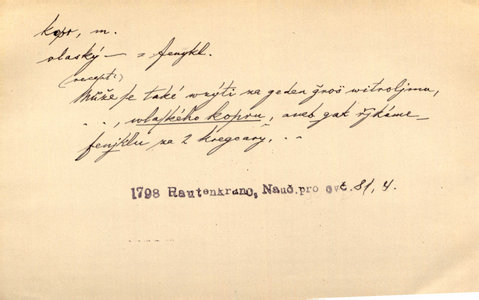 kopr, m.
vlaský – = fenykl.
(recept:)
Může se také wzýti za geden groš witroljmu,
. . , wlaského kopru, aneb gak řjkáme
fenyklu za 2 kregcary, . .
1798 Rautenkranc, Nauč. pro ovč. 81, 4.